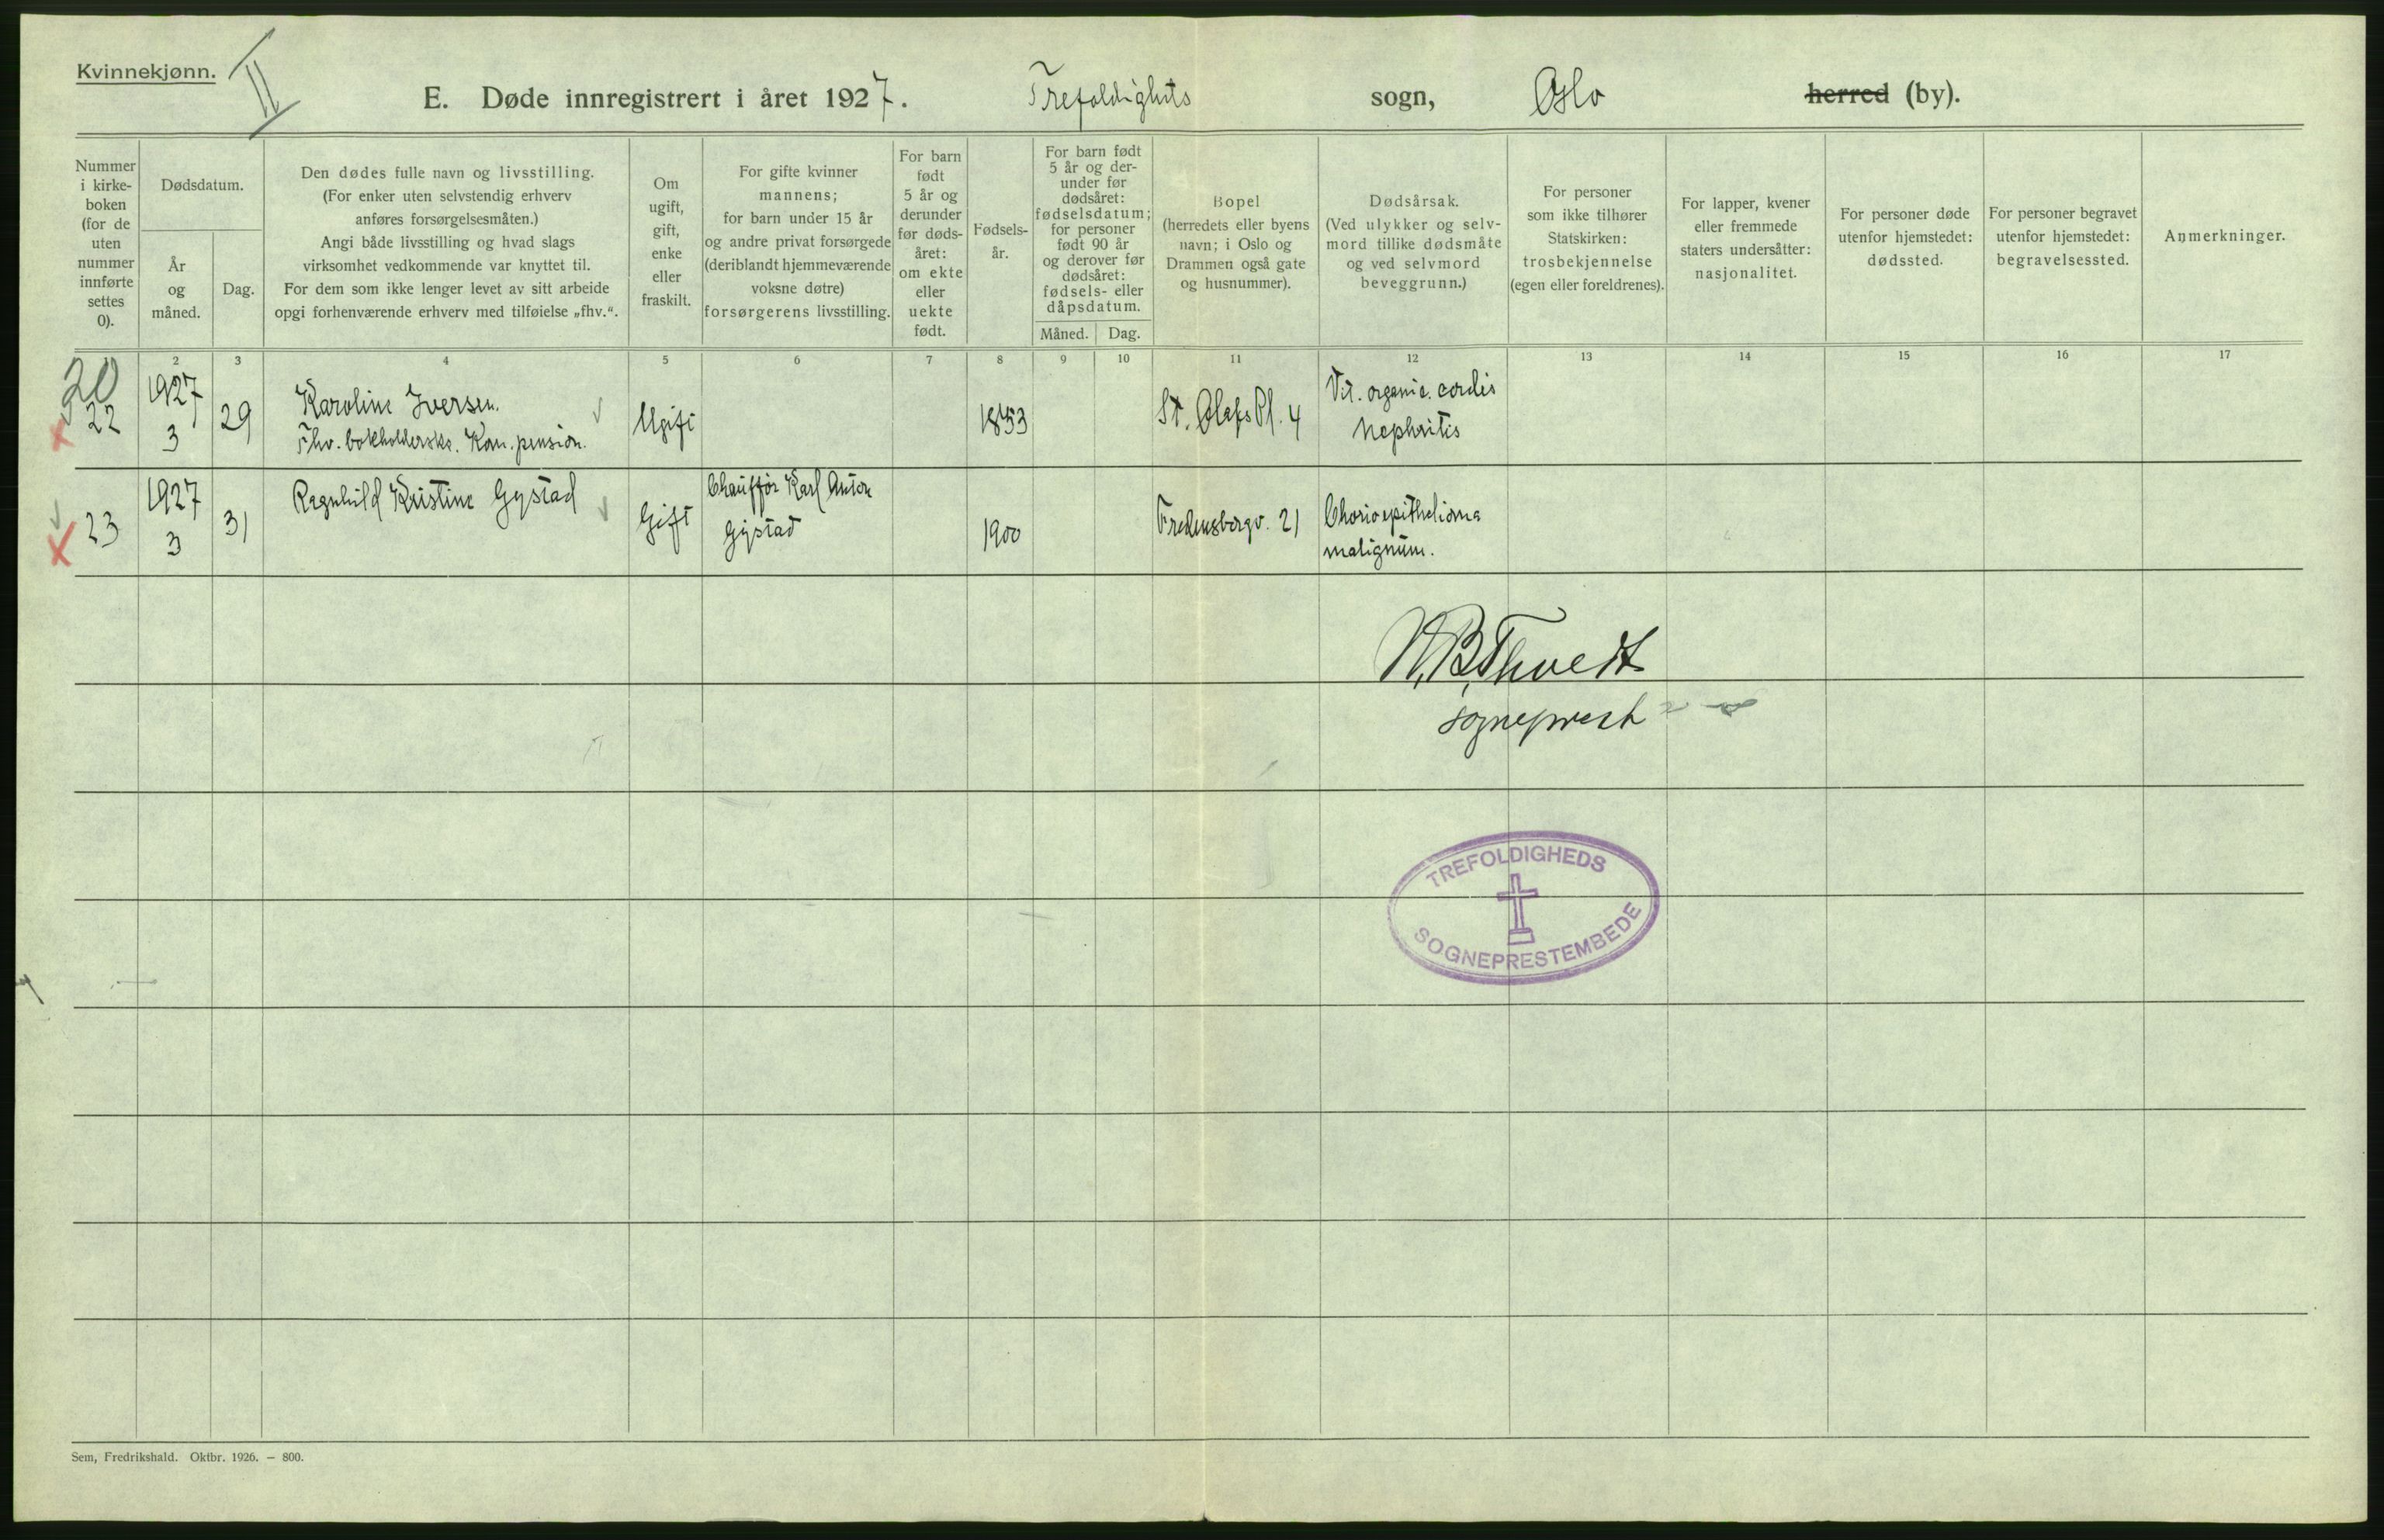 Kvinnekjønn.
II
E. Døde innregistrert i året 1927. Trefoldighets sogn, Oslo herred (by).
Nummer
i kirke-
boken
(for de
uten
nummer
innførte
settes
0).
Dødsdatum.
År
og
måned.
Dag.
Den dødes fulle navn og livsstilling.
(For enker uten selvstendig erhverv
anføres forsørgelsesmåten.)
Angi både livsstilling og hvad slags
virksomhet vedkommende var knyttet til.
For dem som ikke lenger levet av sitt arbeide
opgi forhenværende erhverv med tilføielse „fhv.“.
Om
ugift,
gift,
enke
eller
fraskilt.
For gifte kvinner
mannens;
for barn under 15 år
og andre privat forsørgede
(deriblandt hjemmeværende
voksne døtre)
forsørgerens livsstilling.
For barn
født
5 år og
derunder
før døds-
året:
om ekte
eller
uekte
født.
Fødsels-
år.
For barn født
5 år og der-
under før
dødsåret:
fødselsdatum;
for personer
født 90 år
og derover før
dødsåret:
fødsels- eller
dåpsdatum.
Måned. Dag.
Bopel
(herredets eller byens
navn; i Oslo og
Drammen også gate
og husnummer).
Dødsårsak.
(Ved ulykker og selv-
mord tillike dødsmåte
og ved selvmord
beveggrunn.)
For personer
som ikke tilhører
Statskirken:
trosbekjennelse
(egen eller foreldrenes).
For lapper, kvener
eller fremmede
staters undersåtter:
nasjonalitet.
For personer døde
utenfor hjemstedet:
dødssted.
For personer begravet
utenfor hjemstedet:
begravelsessted.
Anmerkninger.
1 2 3 4 5 6 7 8 9 10 11 12 13 14 15 16 17
20
22
1927
3
29
Karoline Iversen.
Fhv. bokholderske. Kom. pension.
Ugift
1853
St. Olafs Pl. 4
Vit. organic. cordis
Nephritis
23
1927
3
31
Ragnhild Kristine Gystad
Gift
Chauffør Karl Anton
Gystad
1900
Fredensborgv. 21
Chorioepithelioma
malignum.
N.B. Thvedt
sogneprest
TREFOLDIGHEDS
SOGNEPRESTEMBEDE
Sem, Fredrikshald. Oktbr. 1926. — 800.